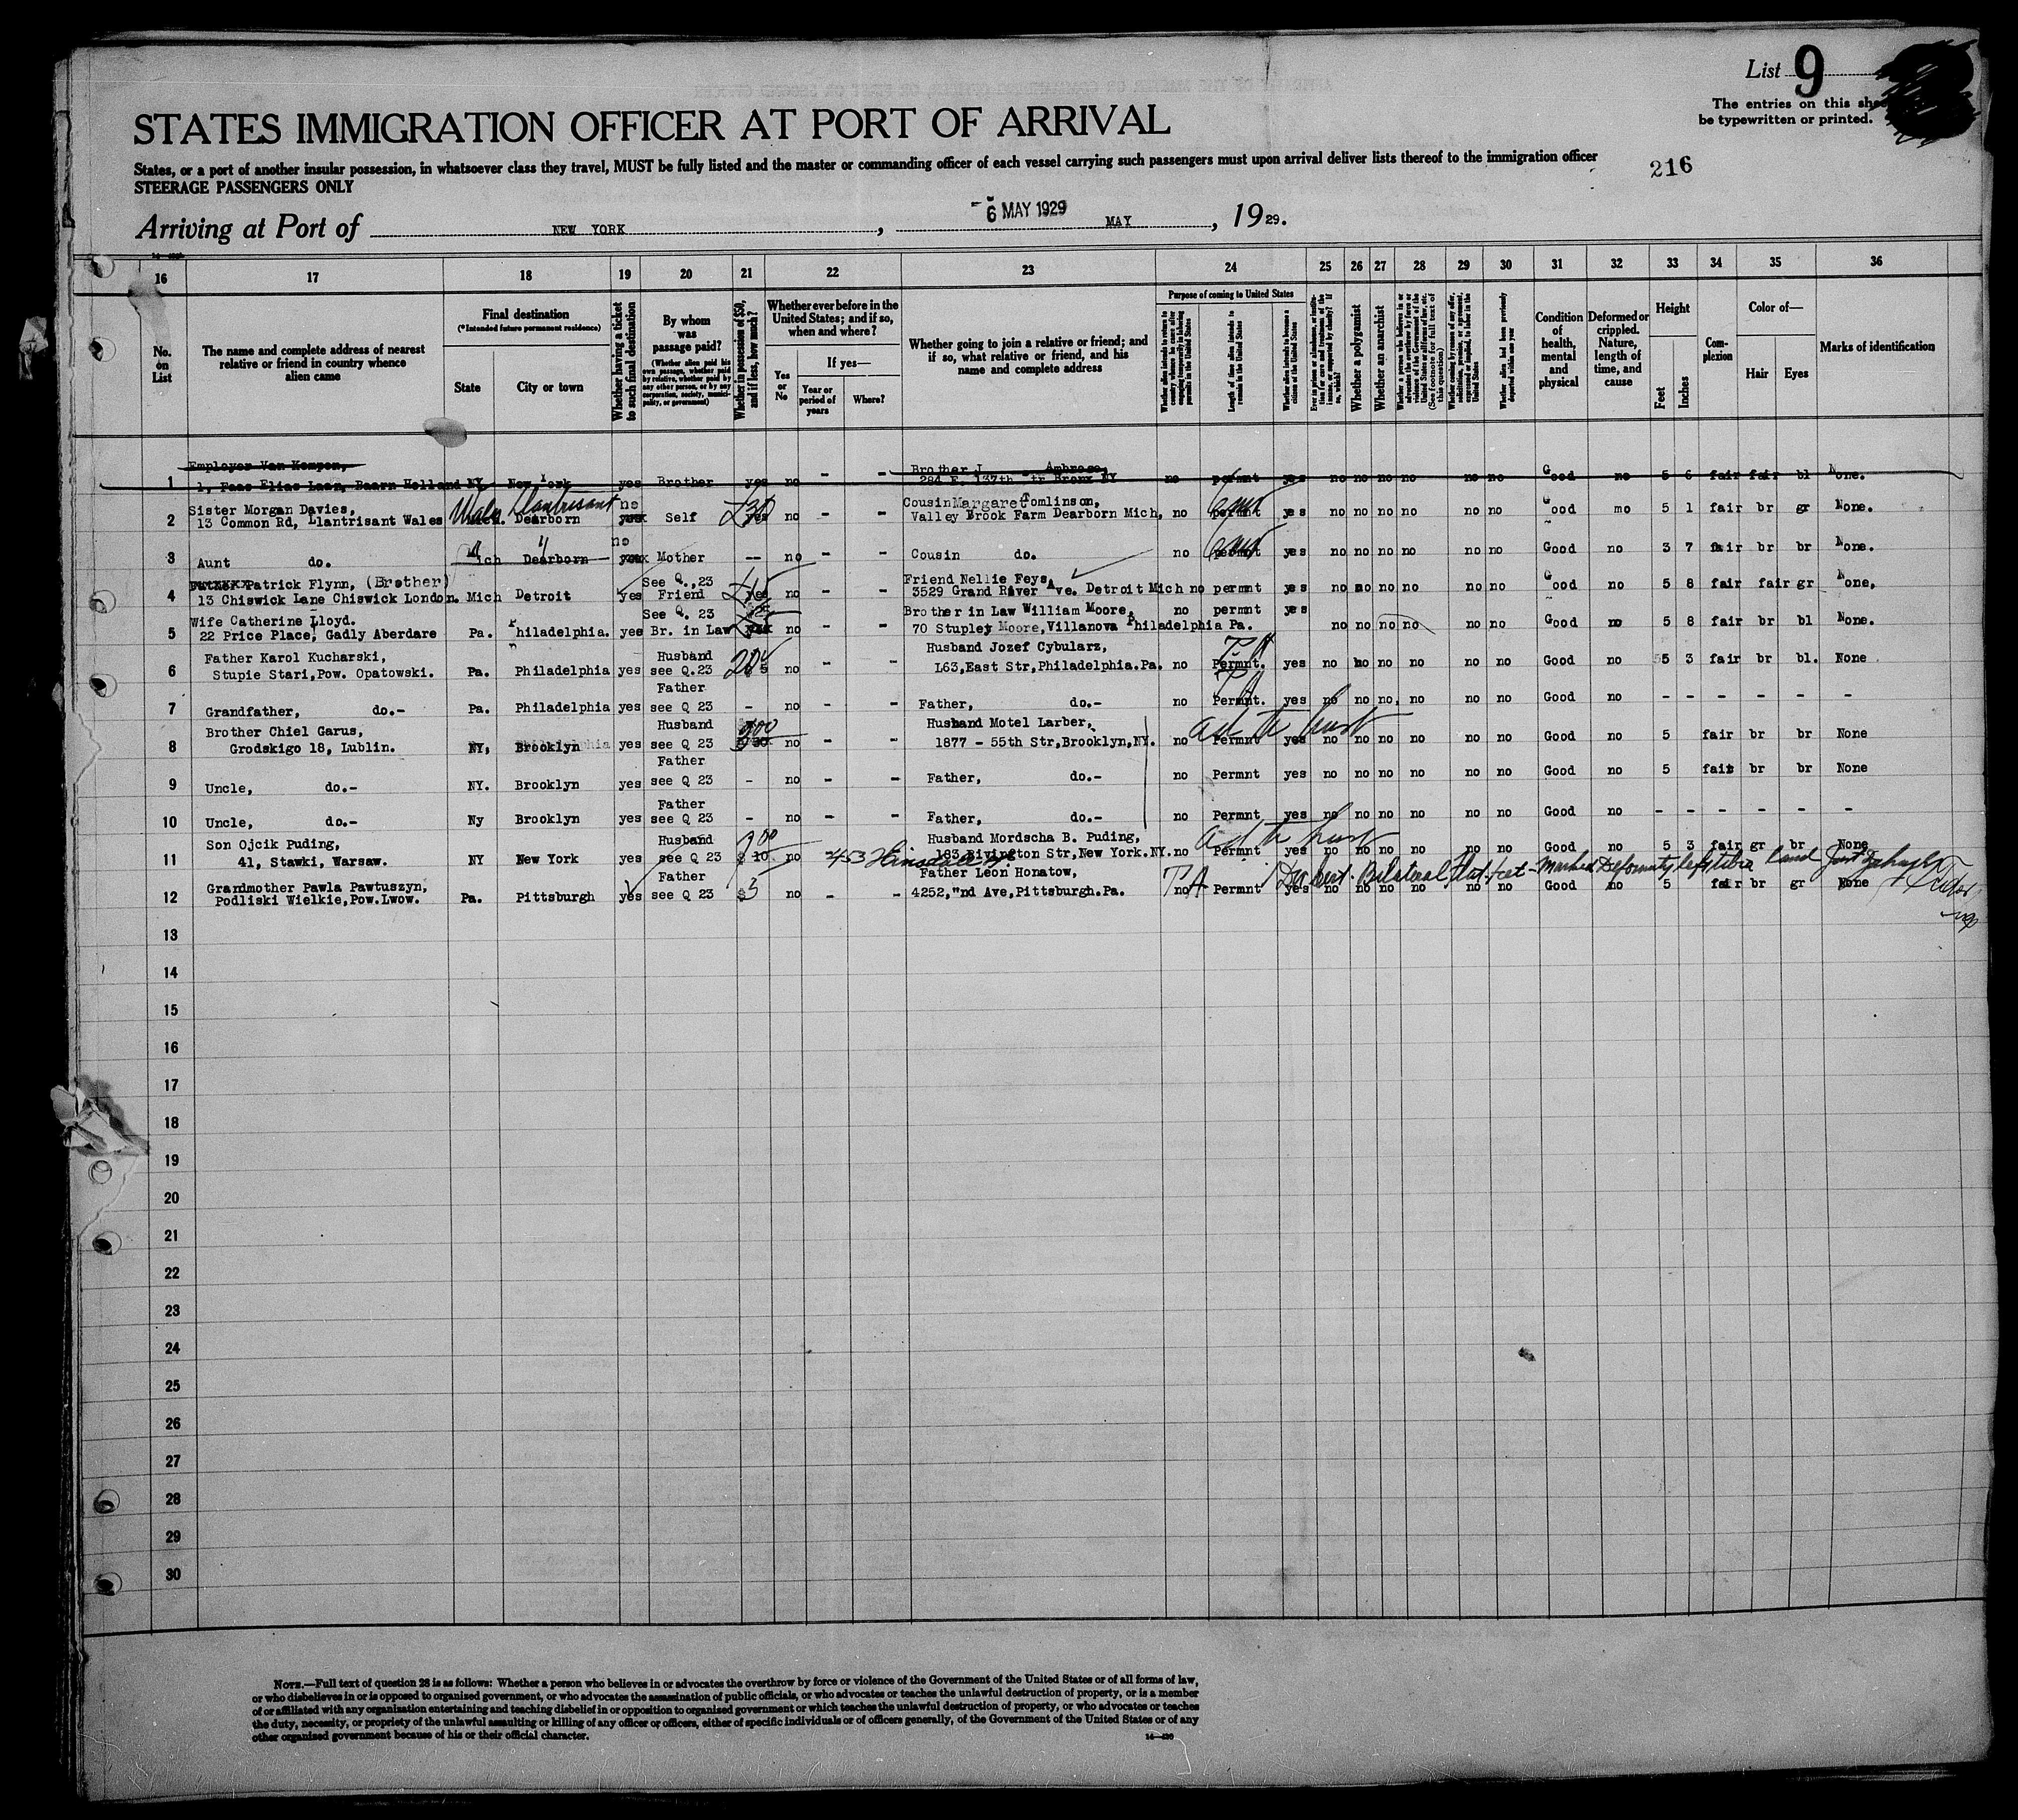 List 9
The entries on this
be typewritten or printed.
STATES IMMIGRATION OFFICER AT PORT OF ARRIVAL
States, or a port of another insular possession, in whatsoever class they travel, MUST be fully listed and the master or commanding officer of each vessel carrying such passengers must upon arrival deliver lists thereof to the immigration officer
216
STEERAGE PASSENGERS ONLY
Arriving at Port of NEW YORK, 6 MAY 1929 MAY, 1929.
16 17 18 19 20 21 22 23 24 25 26 27 28 29 30 31 32 33 34 35 36
No. on List
The name and complete address of nearest relative or friend in country whence alien came
Final destination
(*Intended future permanent residence)
State
City or town
Whether having a ticket to such final destination
By whom was passage paid?
(Whether alien paid his own passage, whether paid by relative, whether paid by any other person, or by any corporation, society, municipality, or government)
Whether in possession of $50, and if less, how much?
Whether ever before in the United States; and if so, when and where?
Yes or No
If yes—
Year or period of years
Where?
Whether going to join a relative or friend; and if so, what relative or friend, and his name and complete address
Purpose of coming to United States
Length of time alien intends to remain in the United States
Whether alien intends to become a citizen of the United States
Whether a polygamist
Whether an anarchist
(See footnote for full text of this question)
Whether alien had been previously deported within one year
Condition of health, mental and physical
Deformed or crippled. Nature, length of time, and cause
Height
Feet
Inches
Complexion
Color of—
Hair
Eyes
Marks of identification
Employer Van Kempen, Brother J. Ambrose,
1 1, Faas Elias Laan, Baarn Holland NY New York yes Brother yes no - - 284 E. 137th Str Bronx NY no permnt yes no no no no no no Good no 5 6 fair fair bl None.
Sister Morgan Davies, Wales Llantrisant no Cousin Margaret Tomlinson,
2 13 Common Rd, Llantrisant Wales Mich. Dearborn Self £30 yes no - - Valley Brook Farm Dearborn Mich, no permnt yes no no no no no no Good mo 5 1 fair br gr None.
3 Aunt do. Mich Dearborn no Mother -- no - - Cousin do. no permnt yes no no no no no no Good no 3 7 fair br br None.
Patrick Flynn, (Brother) See Q.,23 Friend Nellie Feys,
4 13 Chiswick Lane Chiswick London. Mich Detroit yes Friend yes no - - 3529 Grand River Ave. Detroit Mich no permnt yes no no no no no no Good no 5 8 fair fair gr None,
Wife Catherine Lloyd. See Q. 23 Brother in Law William Moore, no permnt yes
5 22 Price Place, Gadly Aberdare Pa. Philadelphia. yes Br. in Law no - - 70 Stupley Moore, Villanova Philadelphia Pa. no no no no no no Good no 5 8 fair br bl None.
Father Karol Kucharski, Husband Husband Jozef Cybularz, T.A
6 Stupie Stari, Pow. Opatowski. Pa. Philadelphia yes see Q.23 20 no - - L63, East Str, Philadelphia. Pa. no Permnt. yes no no no no no no Good no 5 3 fair br bl. None
Father
7 Grandfather, do.- Pa. Philadelphia yes see Q 23 - no - Father, do.- no Permnt. yes no no no, no no no Good no - - - - - -
Brother Chiel Garus, Husband Husband Motel Larber,
8 Grodskigo 18, Lublin. NY, Brooklyn yes see Q 23 no - - 1877 - 55th Str, Brooklyn, NY. no Permnt yes no no no no no no Good no 5 fair br br None
Father
9 Uncle, do.- NY. Brooklyn yes see Q 23 - no - - Father, do.- no Permnt yes no no no no no no Good no 5 fair br br None
Father
10 Uncle, do.- Ny Brooklyn yes see Q 23 - no - - Father, do.- no Permnt yes no no no no no no Good no - - - - - -
Son Ojcik Puding, Husband Husband Mordscha B. Puding,
11 41, Stawki, Warsaw. NY New York yes see Q 23 $ 10 no - 453 Hinsdale St. 183 Rivington Str, New York. NY. no Permnt yes no no no no no no Good no 5 3 fair gr br None
Grandmother Pawla Pawtuszyn, Father Father Leon Honatow, T A Bilateral Flat feet - Marked Deformity left
12 Podliski Wielkie, Pow. Lwow. Pa. Pittsburgh yes see Q 23 $3 no - - 4252, "nd Ave, Pittsburgh. Pa. no Permnt yes no no no no no no Good no 5 fair br gr None
13
14
15
16
17
18
19
20
21
22
23
24
25
26
27
28
29
30
NOTE.—Full text of question 28 is as follows: Whether a person who believes in or advocates the overthrow by force or violence of the Government of the United States or of all forms of law,
or who disbelieves in or is opposed to organized government, or who advocates the assassination of public officials, or who advocates or teaches the unlawful destruction of property, or is a member
of or affiliated with any organization entertaining and teaching disbelief in or opposition to organized government or which teaches the unlawful destruction of property, or who advocates or teaches
the duty, necessity, or propriety of the unlawful assaulting or killing of any officer or officers, either of specific individuals or of officers generally, of the Government of the United States or of any
other organized government because of his or their official character.